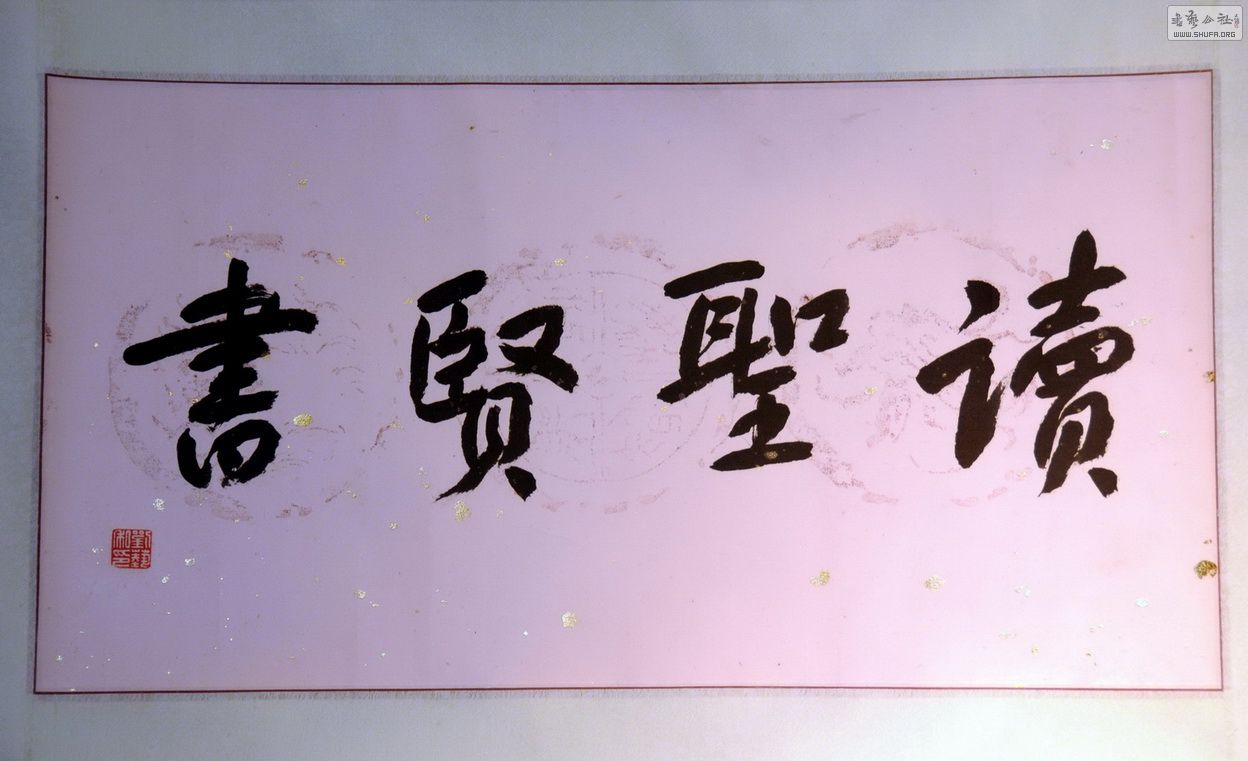 讀聖賢書
劉藝私印
書藝公社
WWW.SHUFA.ORG